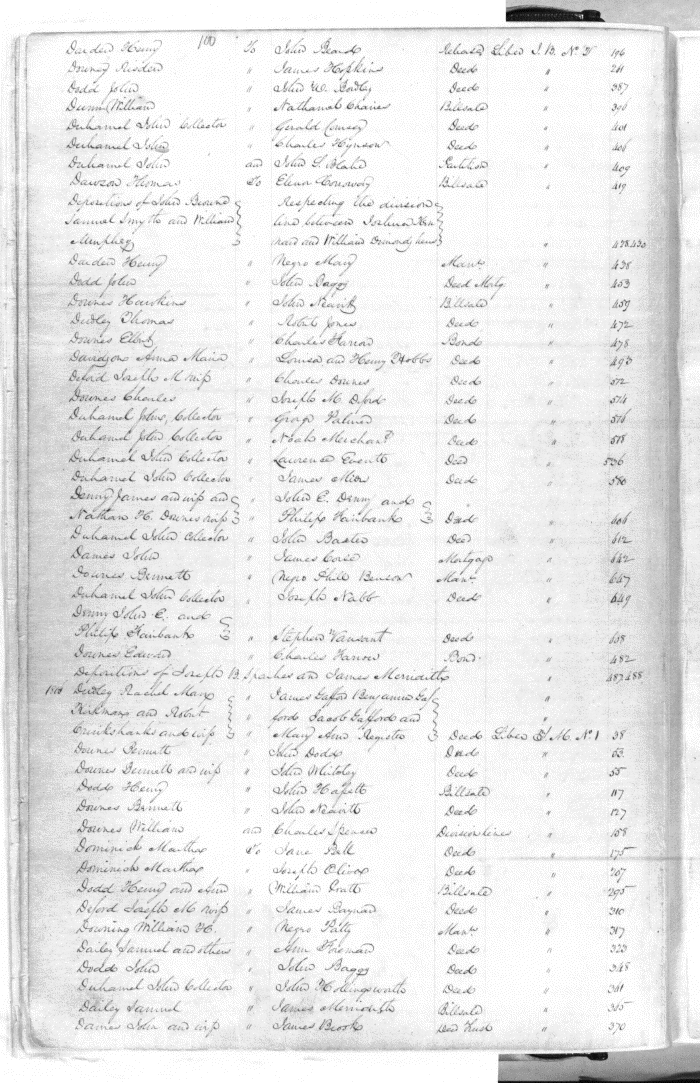 100
Darden Henry To John Beard Release Liber J. B. No 196
Downey Risden " James Hopkins Deed " 261
Dodd John " John W. Bordley Deed " 387
Dunn William " Nathaniel Chaires Billsale " 390
Duhamel John Collector " Gerald Coursey Deed " 401
Duhamel John " Charles Hynson Deed " 406
Duhamel John and John S. Blake Partition " 409
Dawson Thomas To Elenor Conoway Billsale " 419
Depositions of John Browne Respecting the division
Samuel Smyth and William line between
Murphey and William heirs " 428.430
Darden Henry " Negro Mary Manr. " 438
Dodd John " John Baggs Deed Mortg " 453
Downes Hawkins " John Nevitt Billsale " 459
Dudley Thomas " Robert Jones Deed " 472
Downes " Charles Farrow Bond " 478
Davidson Anna Maria " Louisa and Henry Hobbs Deed " 493
Deford Joseph M wife " Charles Downes Deed " 572
Downes Charles " Joseph M. Deford Deed " 574
Duhamel John, Collector " George Palmer Deed " 576
Duhamel John Collector " Noah Merchant Deed " 578
Duhamel John Collector " Lawrence Everett Deed " 536
Duhamel John Collector " James Deed " 580
Denny James and wife and " John E. Denny and "
Nathan H. Downes wife " Philip Fairbank Deed " 606
Duhamel John Collector " John Deed " 612
Dames John " James Corse Mortgage " 642
Downes Bennett " Negro Phill Benson Manr. " 647
Duhamel John Collector " Joseph Nabb Deed " 649
Denny John E. and
Philip Fairbank " Stephen Vansant Deed " 658
Downes Edward " Charles Farrow Bond " 482
Depositions of Joseph B. Sparkes and James Merridith " 487.488
Dudley Rachel Mary " James Gafford Benjamin Gaf "
Kirkman and Robert ford Jacob Gafford and "
Cruikshanks and wife " Mary Ann Register Deed Liber M. No. 1 38
Downes Bennett " John Dodd Deed " 53
Downes Bennett and wife " John Whiteley Deed " 55
Dodd Henry " John Billsale " 117
Downes Bennett " John Nevitt Deed " 127
Downes William and Charles Spencer Division lines " 158
Dominick Martha To Jane Bell Deed " 175
Dominick Martha " Joseph Oliver Deed " 267
Dodd Henry and Ann " William Pratt Billsale " 295
Deford Joseph M. wife " James Baynard Deed " 310
Downing William H. " Negro Patty Manr. " 317
Dailey Samuel and others " Ann Foreman Deed " 323
Dodd John " John Baggs Deed " 348
Duhamel John Collector " John Hollingsworth Deed " 361
Dailey Samuel " James Merridith Billsale " 365
Dames John and wife " James Brook Deed Trust " 370